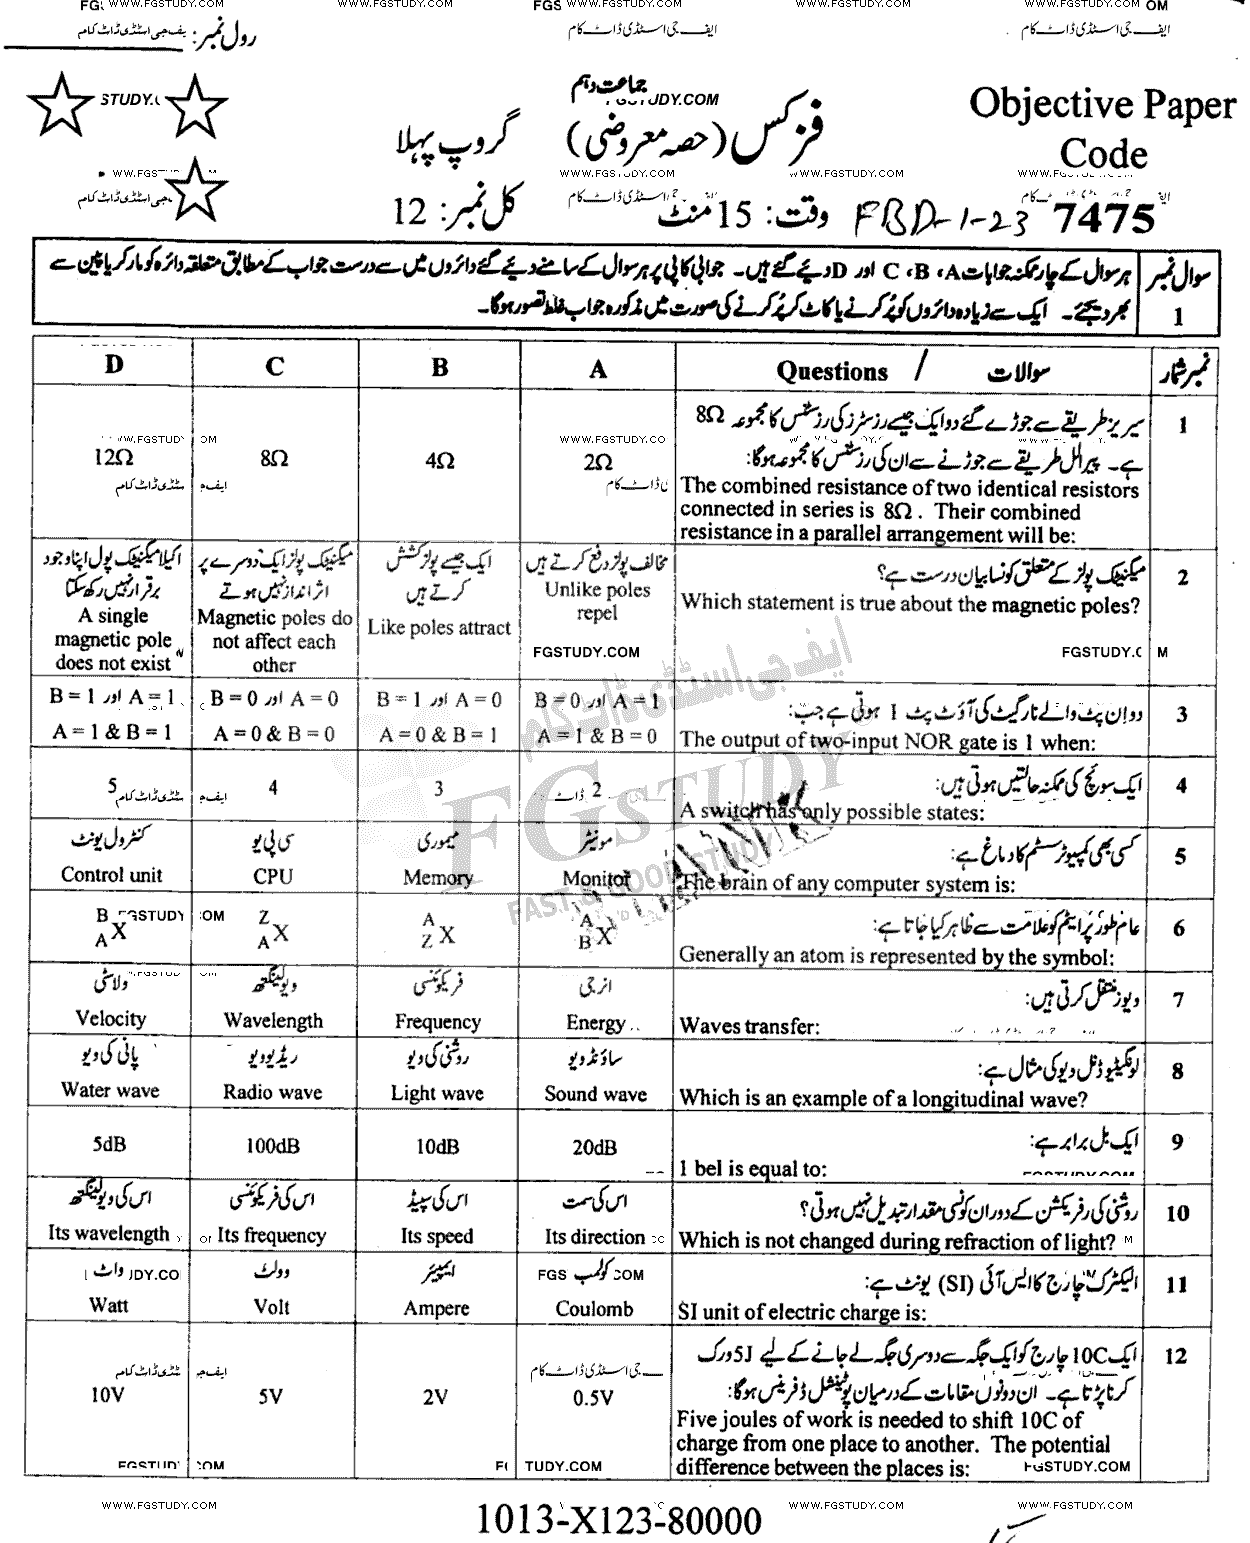 WWW.FGSTUDY.COM WWW.FGSTUDY.COM FGS WWW.FGSTUDY.COM WWW.FGSTUDY.COM OM
رول نمبر: ایف جی اسٹڈی ڈاٹ کام ایف جی اسٹڈی ڈاٹ کام
جماعت دہم
STUDY.C FGSTUDY.COM
Objective Paper
Code
7475
فزکس (حصہ معروضی) گروپ پہلا
WWW.FGSTUDY.COM WWW.FGSTUDY.COM
وقت: 15 منٹ کل نمبر: 12
FBD-1-23
سوال نمبر 1
ہر سوال کے چار ممکنہ جوابات A، B، C اور D دیئے گئے ہیں۔ جوابی کاپی پر ہر سوال کے سامنے دیئے گئے دائروں میں سے درست جواب کے مطابق متعلقہ دائرہ کو مارکر یا پین سے
بھر دیجئے۔ ایک سے زیادہ دائروں کو پُر کرنے یا کاٹ کر پُر کرنے کی صورت میں مذکورہ جواب غلط تصور ہوگا۔
نمبر شمار سوالات / Questions A B C D
1 سیریز طریقے سے جوڑے گئے دو ایک جیسے رزسٹرز کی رزسٹنس کا مجموعہ 8Ω
ہے۔ پیرالل طریقے سے جوڑنے سے ان کی رزسٹنس کا مجموعہ ہوگا:
The combined resistance of two identical resistors
connected in series is 8Ω. Their combined
resistance in a parallel arrangement will be:
2Ω 4Ω 8Ω 12Ω
2 میگنیٹک پولز کے متعلق کونسا بیان درست ہے؟
Which statement is true about the magnetic poles?
مخالف پولز دفع کرتے ہیں
Unlike poles
repel
ایک جیسے پولز کشش
کرتے ہیں
Like poles attract
میگنیٹک پولز ایک دوسرے پر
اثر انداز نہیں ہوتے
Magnetic poles do
not affect each
other
اکیلا میگنیٹک پول اپنا وجود
برقرار نہیں رکھ سکتا
A single
magnetic pole
does not exist
FGSTUDY.COM FGSTUDY.C M
3 دو اِن پٹ والے نار گیٹ کی آؤٹ پٹ 1 ہوتی ہے جب:
The output of two-input NOR gate is 1 when:
A = 1 اور B = 0
A = 1 & B = 0
A = 0 اور B = 1
A = 0 & B = 1
A = 0 اور B = 0
A = 0 & B = 0
A = 1 اور B = 1
A = 1 & B = 1
4 ایک سوئچ کی ممکنہ حالتیں ہوتی ہیں:
A switch has only possible states:
2 3 4 5
ایف جی اسٹڈی ڈاٹ کام
FGSTUDY
FAST & GOOD STUDY
5 کسی بھی کمپیوٹر سسٹم کا دماغ ہے:
The brain of any computer system is:
مونیٹر میموری سی پی یو کنٹرول یونٹ
Monitor Memory CPU Control unit
6 عام طور پر ایٹم کو علامت سے ظاہر کیا جاتا ہے:
Generally an atom is represented by the symbol:
A B X
A Z X
Z A X
B A X
7 ویوز منتقل کرتی ہیں:
Waves transfer:
انرجی فریکوئنسی ویولینگتھ ولاسٹی
Energy Frequency Wavelength Velocity
8 لونگیٹیوڈنل ویو کی مثال ہے:
Which is an example of a longitudinal wave?
ساؤنڈ ویو روشنی کی ویو ریڈیو ویو پانی کی ویو
Sound wave Light wave Radio wave Water wave
9 ایک بل برابر ہے:
1 bel is equal to:
20dB 10dB 100dB 5dB
10 روشنی کی رفریکشن کے دوران کونسی مقدار تبدیل نہیں ہوتی؟
Which is not changed during refraction of light?
اس کی سمت اس کی سپیڈ اس کی فریکوئنسی اس کی ویولینگتھ
Its direction Its speed Its frequency Its wavelength
11 الیکٹرک چارج کا ایس آئی (SI) یونٹ ہے:
SI unit of electric charge is:
کولمب ایمپیئر وولٹ واٹ
Coulomb Ampere Volt Watt
12 ایک 10C چارج کو ایک جگہ سے دوسری جگہ لے جانے کے لیے 5J ورک
کرنا پڑتا ہے۔ ان دونوں مقامات کے درمیان پوٹینشل ڈفرینس ہوگا:
Five joules of work is needed to shift 10C of
charge from one place to another. The potential
difference between the places is:
0.5V 2V 5V 10V
FGSTUDY.COM
WWW.FGSTUDY.COM WWW.FGSTUDY.COM WWW.FGSTUDY.COM
1013-X123-80000